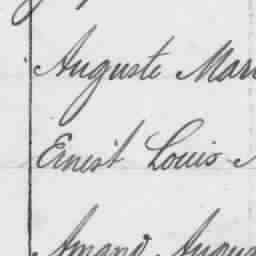 Auguste Mar
Ernest Louis
Amand Augu